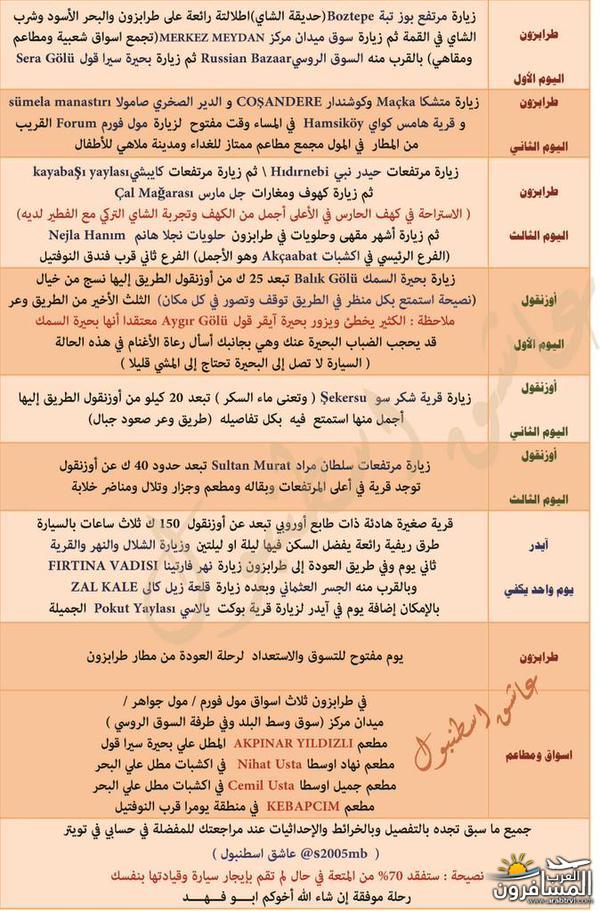 طرابزون
اليوم الأول
زيارة مرتفع بوز تبة Boztepe (حديقة الشاي) اطلالتة رائعة على طرابزون والبحر الأسود وشرب
الشاي في القمة ثم زيارة سوق ميدان مركز MERKEZ MEYDAN (تجمع اسواق شعبية ومطاعم
ومقاهي) بالقرب منه السوق الروسي Russian Bazaar ثم زيارة بحيرة سيرا قول Sera Gölü
طرابزون
اليوم الثاني
زيارة متشكا Maçka وكوشندار COŞANDERE و الدير الصخري صامولا sümela manastırı
و قرية هامس كواي Hamsiköy في المساء وقت مفتوح لزيارة مول فورم Forum القريب
من المطار في المول مجمع مطاعم ممتاز للغداء ومدينة ملاهي للأطفال
طرابزون
اليوم الثالث
زيارة مرتفعات حيدر نبي Hıdırnebi \ ثم زيارة مرتفعات كايبشي kayabaşı yaylası
ثم زيارة كهوف ومغارات جل مارس Çal Mağarası
( الاستراحة في كهف الحارس في الأعلى أجمل من الكهف وتجربة الشاي التركي مع الفطير لديه)
ثم زيارة أشهر مقهى وحلويات في طرابزون حلويات نجلا هانم Nejla Hanım
(الفرع الرئيسي في اكشبات Akçaabat وهو الأجمل) الفرع الثاني قرب فندق النوفتيل
أوزنقول
اليوم الأول
زيارة بحيرة السمك Balık Gölü تبعد 25 ك من أوزنقول الطريق إليها نسج من خيال
(نصيحة استمتع بكل منظر في الطريق توقف وتصور في كل مكان) الثلث الأخير من الطريق وعر
ملاحظة : الكثير يخطئ ويزور بحيرة آيقر قول Aygır Gölü معتقدا أنها بحيرة السمك
قد يحجب الضباب البحيرة عنك وهي بجانبك أسأل رعاة الأغنام في هذه الحالة
( السيارة لا تصل إلى البحيرة تحتاج إلى المشي قليلا )
أوزنقول
اليوم الثاني
زيارة قرية شكر سو Şekersu ( وتعنى ماء السكر ) تبعد 20 كيلو من أوزنقول الطريق إليها
أجمل منها استمتع فيه بكل تفاصيله (طريق وعر صعود جبال)
أوزنقول
اليوم الثالث
زيارة مرتفعات سلطان مراد Sultan Murat تبعد حدود 40 ك عن أوزنقول
توجد قرية في أعلى المرتفعات وبقاله ومطعم وجزار وتلال ومناضر خلابة
آيدر
يوم واحد يكفي
قرية صغيرة هادئة ذات طابع أوروبي تبعد عن أوزنقول 150 ك ثلاث ساعات بالسيارة
طرق ريفية رائعة يفضل السكن فيها ليلة او ليلتين وزيارة الشلال والنهر والقرية
ثاني يوم وفي طريق العودة إلى طرابزون زيارة نهر فارتينا FIRTINA VADISI
وبالقرب منه الجسر العثماني وبعده زيارة قلعة زيل كالى ZAL KALE
بالإمكان إضافة يوم في آيدر لزيارة قرية بوكت يالاسي Pokut Yaylası الجميلة
طرابزون
يوم مفتوح للتسوق والاستعداد لرحلة العودة من مطار طرابزون
اسواق ومطاعم
في طرابزون ثلاث اسواق مول فورم / مول جواهر /
ميدان مركز (سوق وسط البلد وفي طرفة السوق الروسي )
مطعم AKPINAR YILDIZLI المطل علي بحيرة سيرا قول
مطعم نهاد اوسطا Nihat Usta في اكشبات مطل علي البحر
مطعم جميل اوسطا Cemil Usta في اكشبات مطل علي البحر
مطعم KEBAPCIM في منطقة يومرا قرب النوفتيل
عاشق اسطنبول
جميع ما سبق تجده بالتفصيل وبالخرائط والإحداثيات عند مراجعتك للمفضلة في حسابي في تويتر
( @s2005mb عاشق اسطنبول )
نصيحة : ستفقد 70% من المتعة في حال لم تقم بإيجار سيارة وقيادتها بنفسك
رحلة موفقة إن شاء الله أخوكم ابـو فـهـد
العرب
المسافرون
www.arabtrvl.com